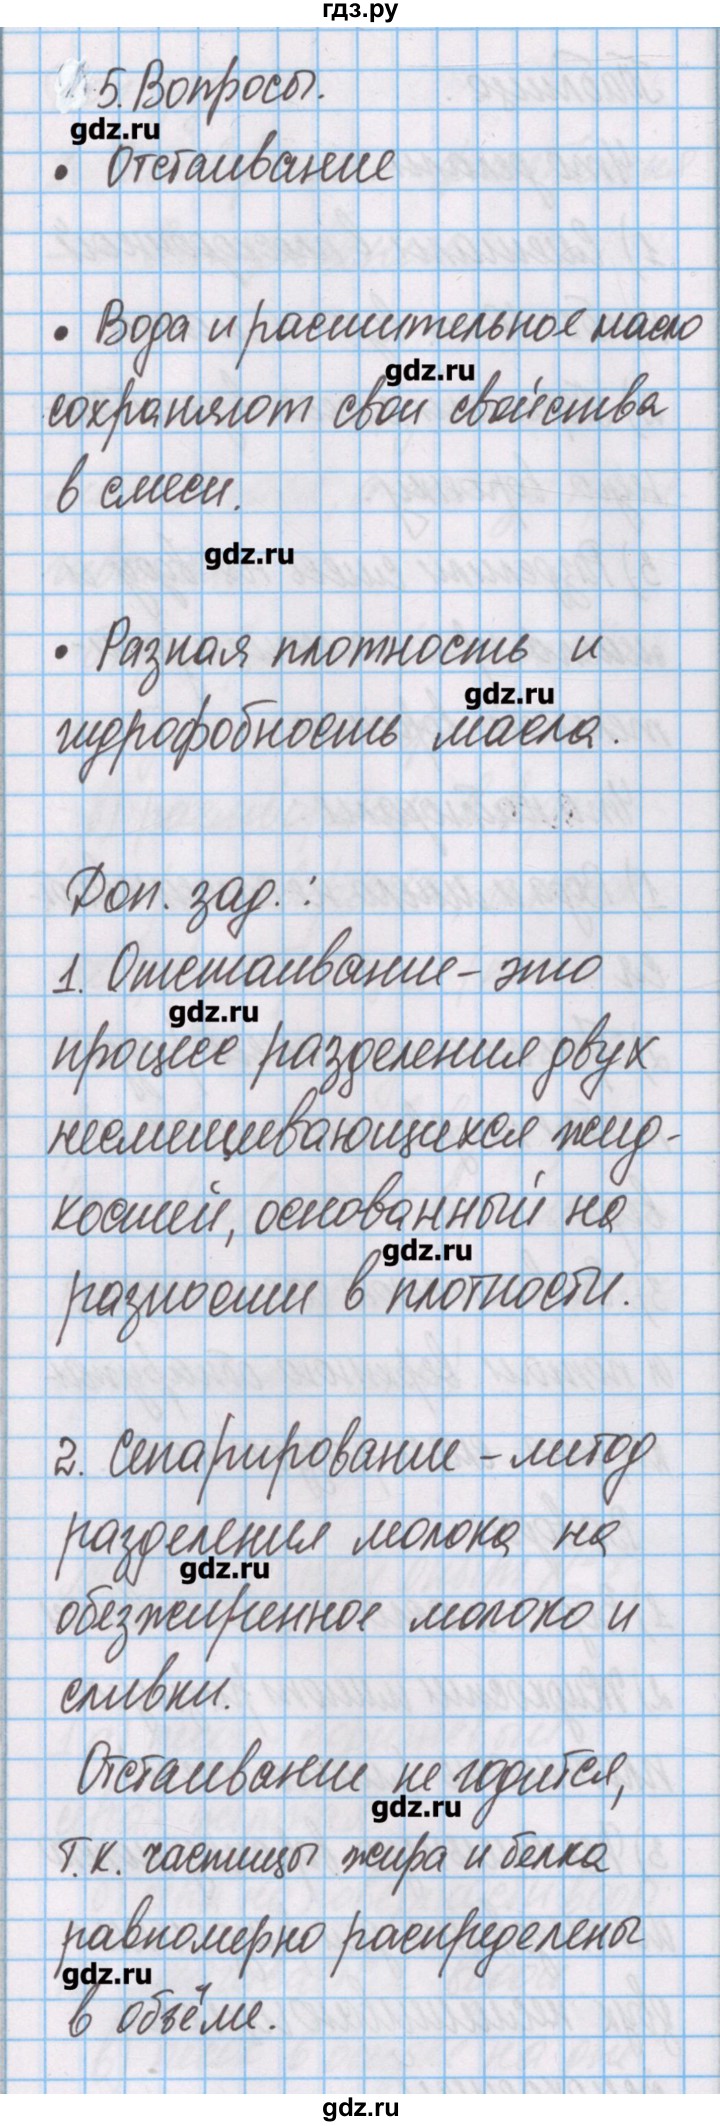 гдз.ру
5. Вопросы.
gdz.ru
• Отстаивание
• Вода и растительное масло
gdz.ru
сохраняют свои свойства
в смеси.
gdz.ru
• Разная плотность и
gdz.ru
гидрофобность масла.
Доп. зад.:
1. Отстаивание – это
gdz.ru
процесс разделения двух
несмешивающихся жид-
костей, основанный на
gdz.ru
разности в плотности.
2. Сепарирование – метод
разделения молока на
gdz.ru
обезжиренное молоко и
сливки.
Отстаивание не годится,
gdz.ru
т.к. частицы жира и белка
равномерно распределены
gdz.ru
в объёме.
gdz.ru